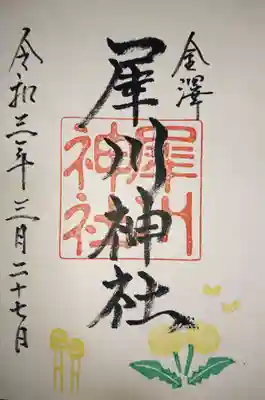 金澤
犀川神社
犀川
神社
令和三年三月二十七日